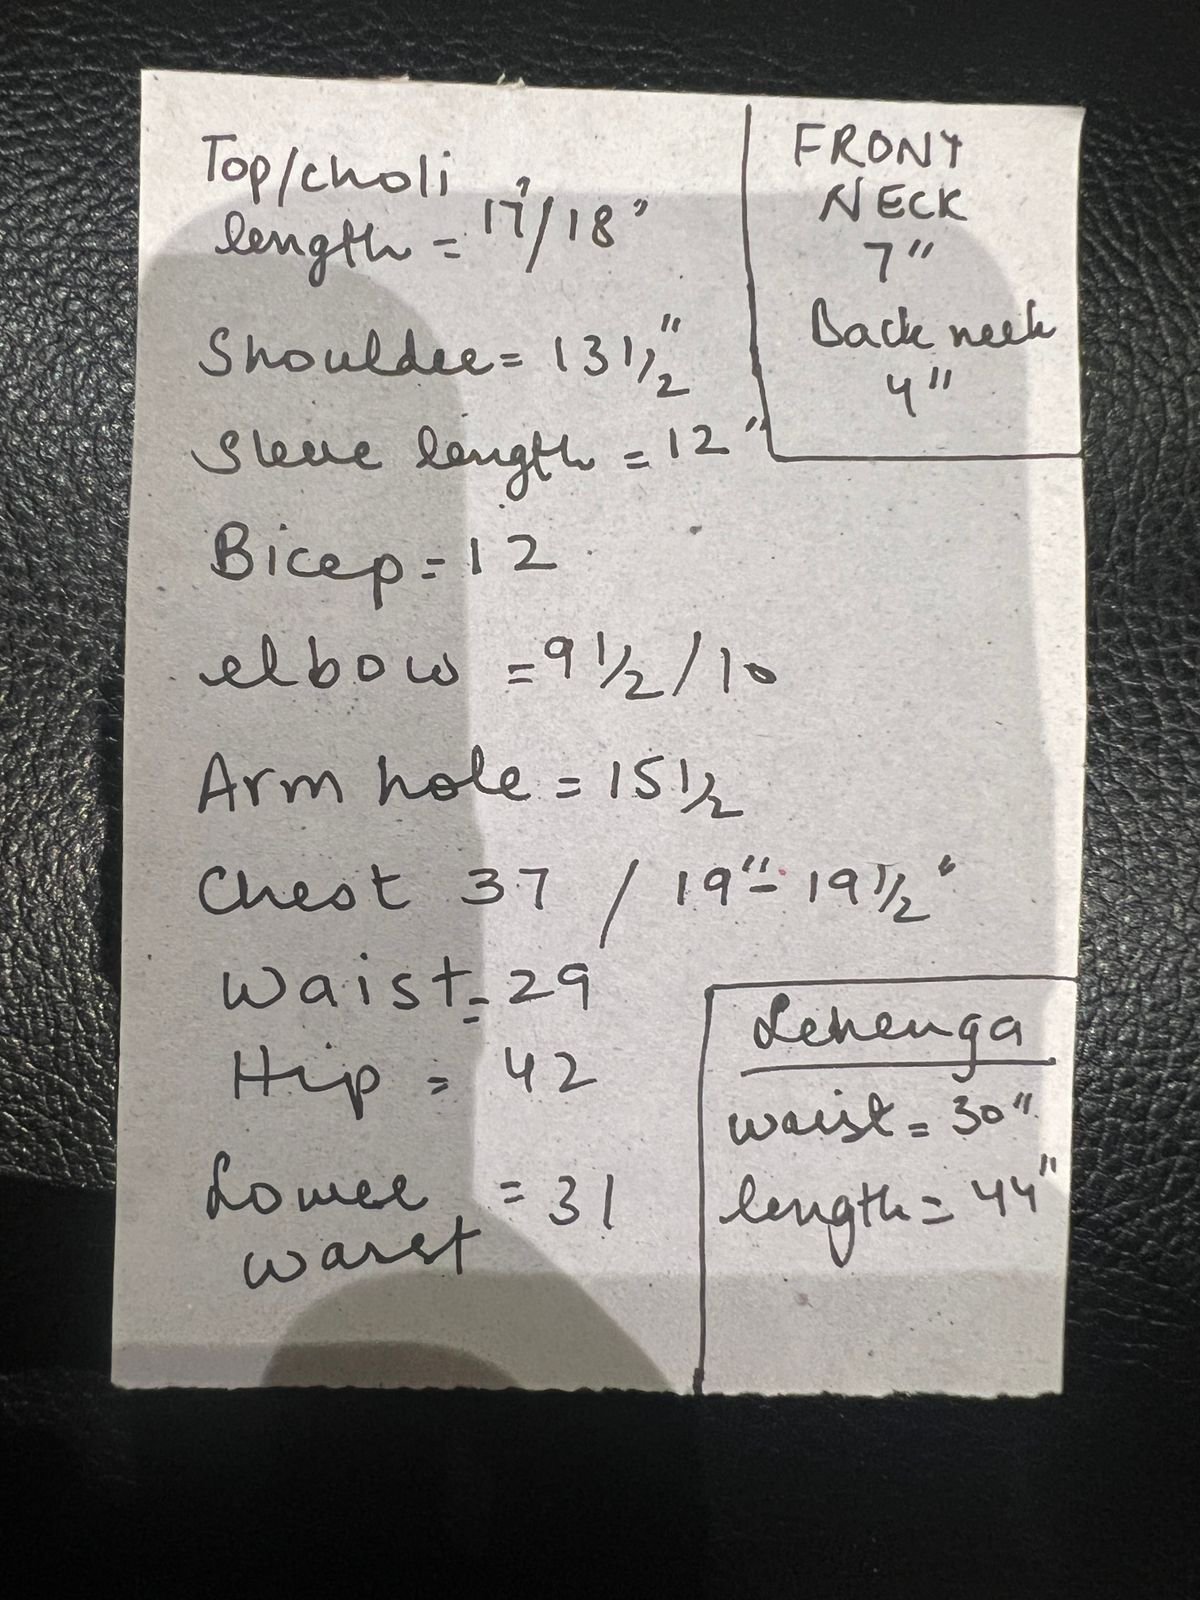 Top/choli
length = 17"/18"
Shoulder = 13 1/2"
Sleve length = 12"
Bicep = 12
elbow = 9 1/2 / 10
Arm hole = 15 1/2
Chest 37 / 19" - 19 1/2"
Waist = 29
Hip = 42
Lower = 31
waist
FRONT
NECK
7"
Back neck
4"
Lehenga
waist = 30"
length = 44"